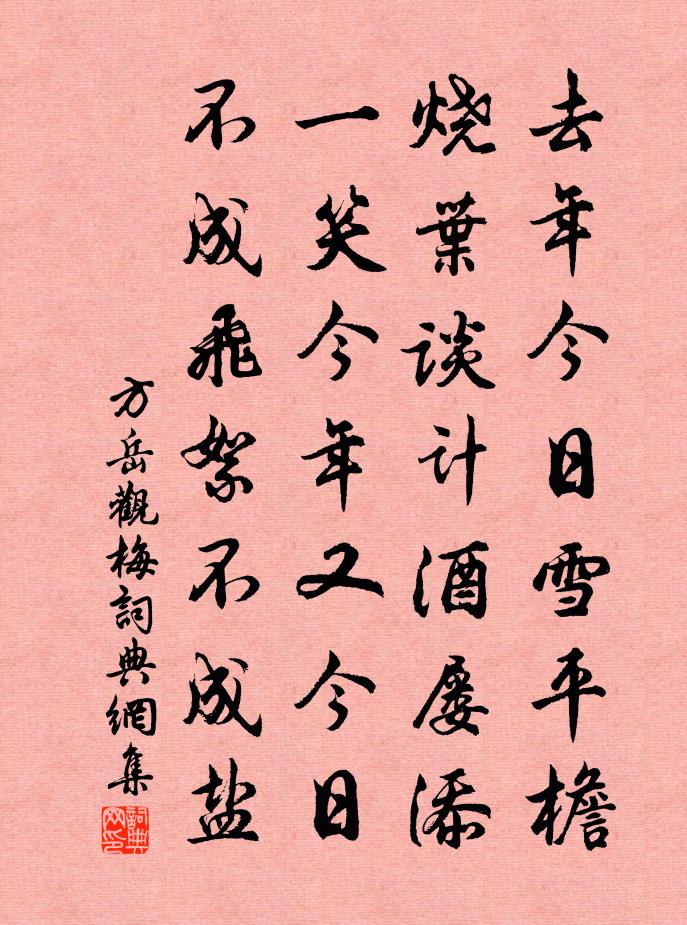 去年今日雪平檐
烧葉談计酒屡添
一笑今年又今日
不成飛絮不成盐
方岳觀梅詞典網集
詞典网印